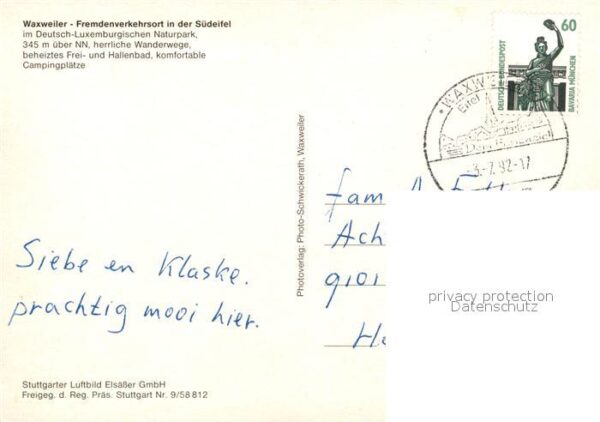 Waxweiler - Fremdenverkehrsort in der Südeifel
im Deutsch-Luxemburgischen Naturpark,
345 m über NN, herrliche Wanderwege,
beheiztes Frei- und Hallenbad, komfortable
Campingplätze
60
DEUTSCHE BUNDESPOST
BAVARIA MÜNCHEN
WAXW
Eifel
-3.-7.92-17
Photoverlag: Photo-Schwickerath, Waxweiler
fam
Ach
9101
privacy protection
Datenschutz
Siebe en Klaske.
prachtig mooi hier.
Stuttgarter Luftbild Elsäßer GmbH
Freigeg. d. Reg. Präs. Stuttgart Nr. 9/58 812